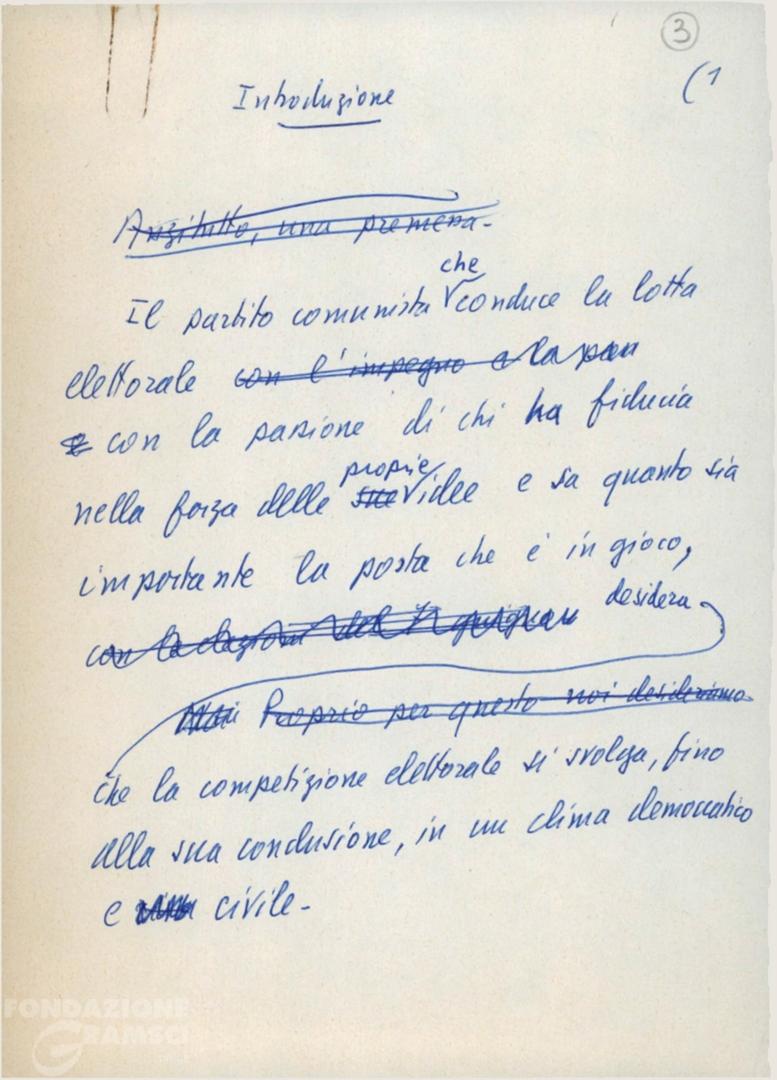 3
(1
Introduzione
Anzitutto, una premessa.
che
Il partito comunista conduce la lotta
elettorale con l'impegno e la
e con la passione di chi ha fiducia
proprie
nella forza delle sue idee e sa quanto sia
importante la posta che è in gioco,
desidera
con la
Noi Proprio per questo noi desideriamo
che la competizione elettorale si svolga, fino
alla sua conclusione, in un clima democratico
e civile.
FONDAZIONE
GRAMSCI